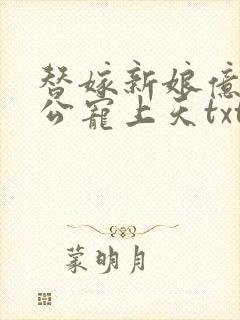 替嫁新娘億
公寵上天txt
蒙明月